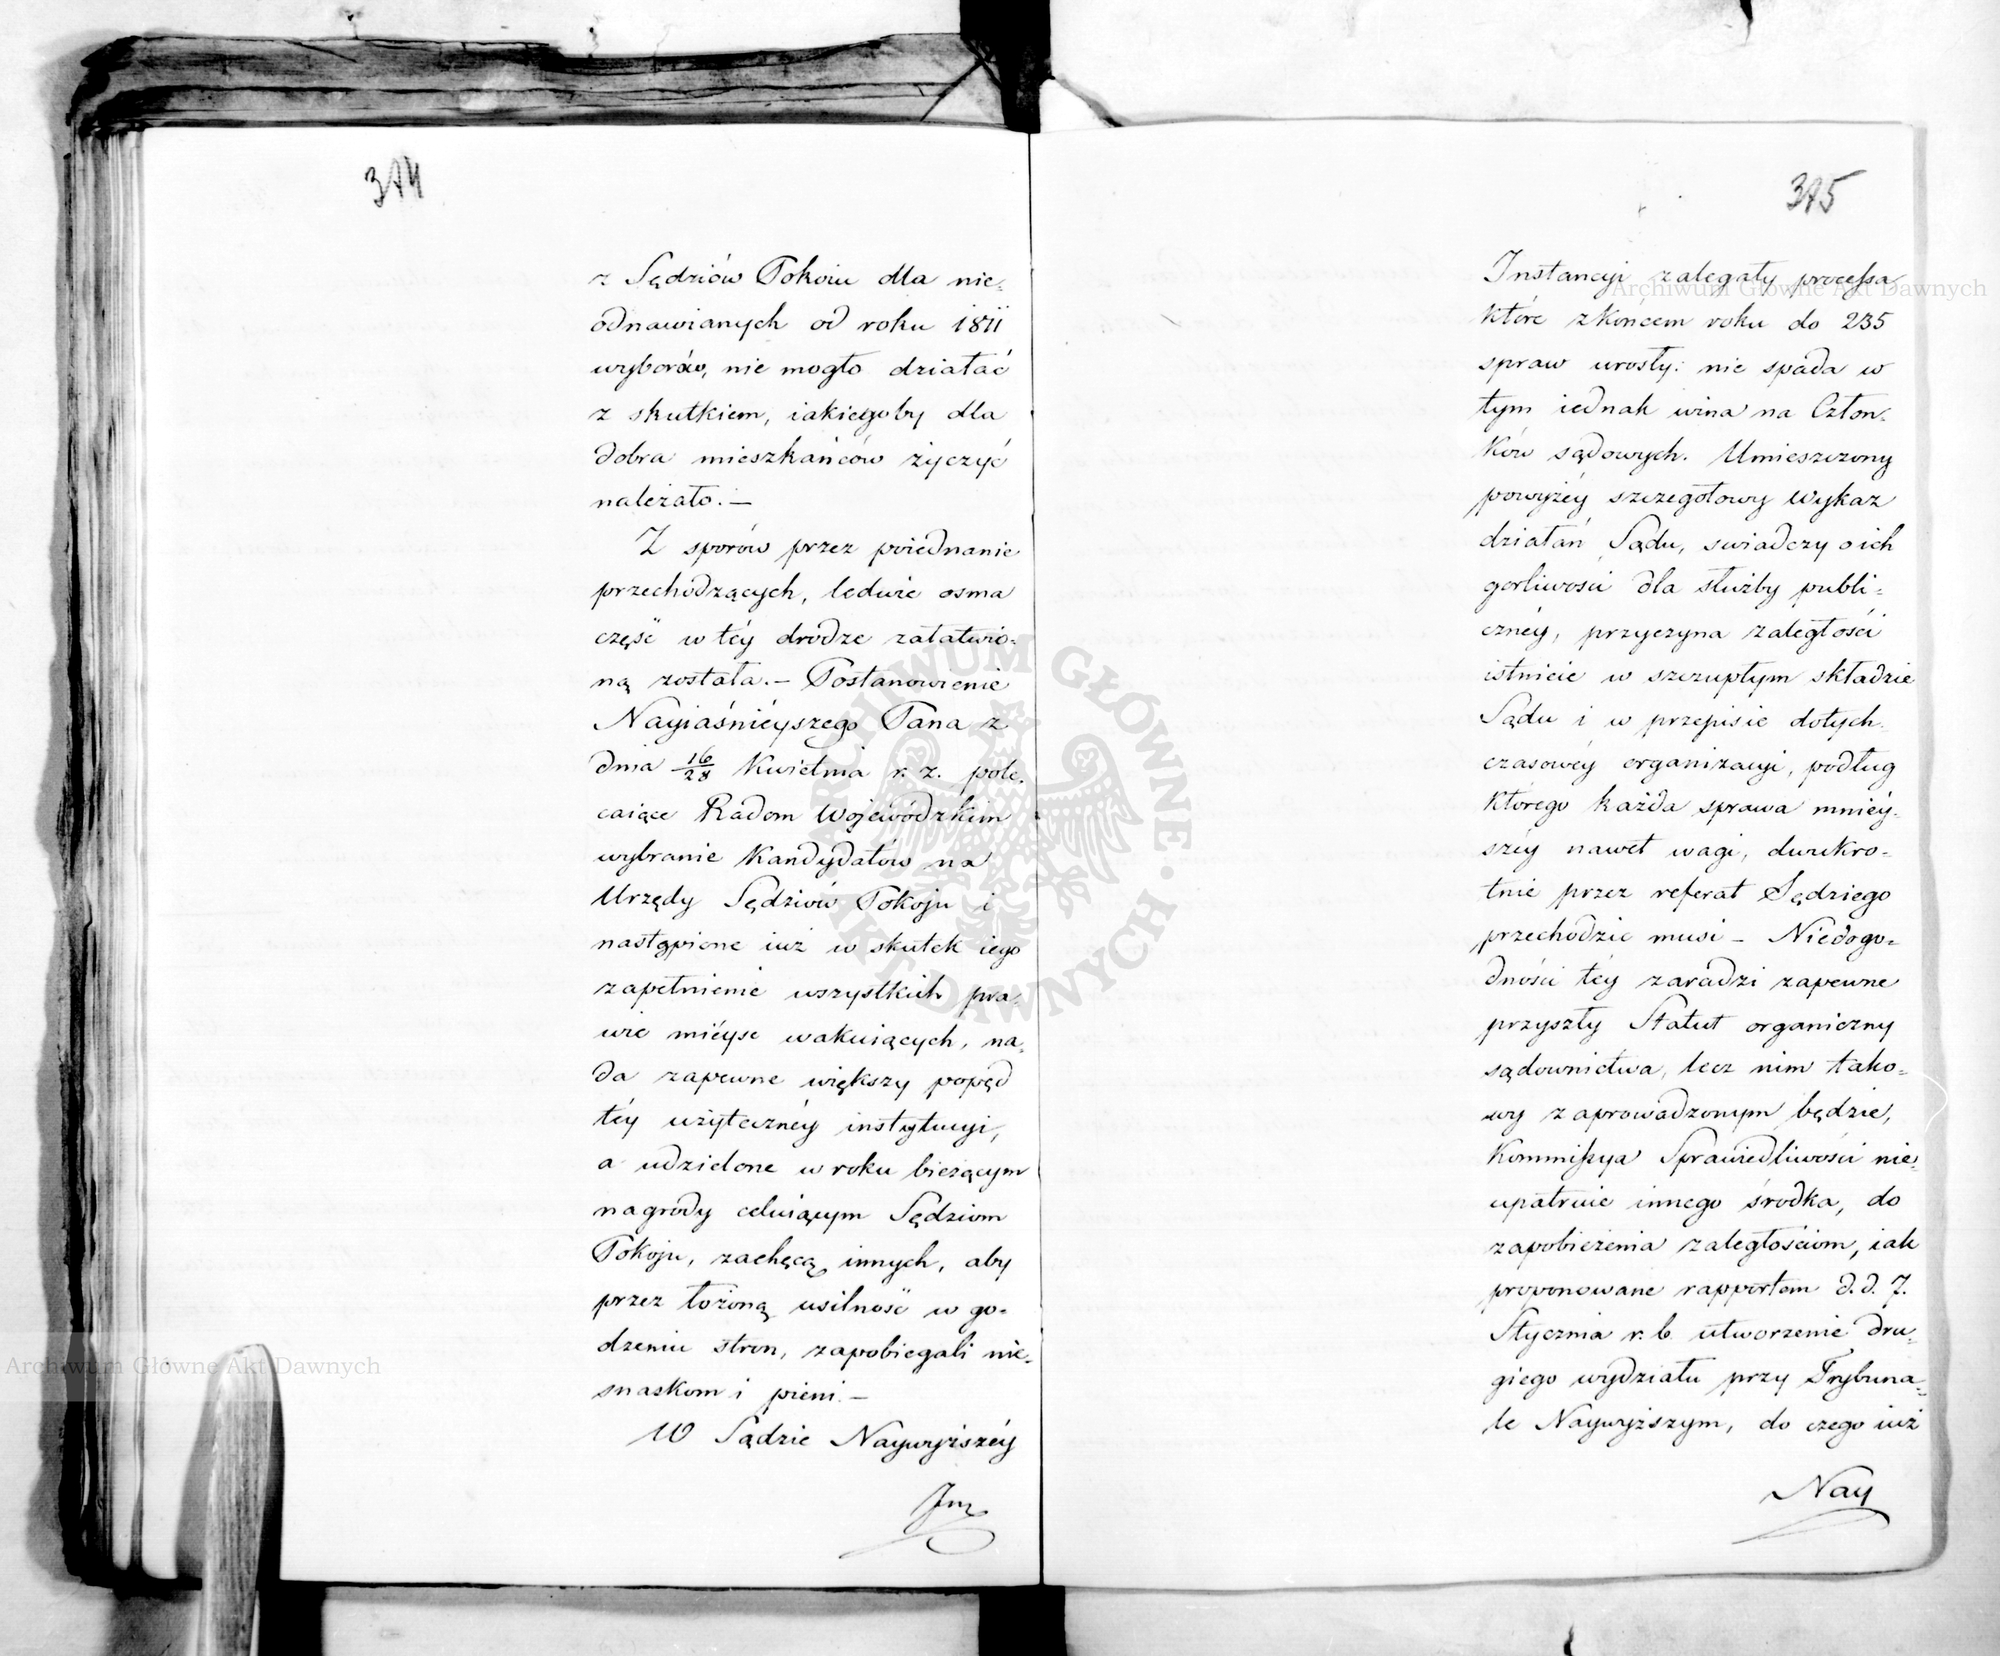 374
z Sędziów Pokoiu dla nie-
odnawianych od roku 1811
wyborów, nie mogło działać
z skutkiem, iakiegoby dla
dobra mieszkańców życzyć
należało.—
Z sporów przez poiednanie
przechodzących, ledwie osma
część w téy drodze załatwio-
ną została.— Postanowienie
Nayiaśniéyszego Pana z
dnia 16/28 Kwietnia r. z. pole-
caiące Radom Wojewódzkim
wybranie Kandydatów na
Urzędy Sędziów Pokoju i
nastąpione iuż w skutek iego
zapełnienie wszystkich pra-
wie miéysc wakuiących, na-
da zapewne większy popęd
téy użytecznéy instytucyi,
a udzielone w roku bieżącym
nagrody celuiącym Sędziom
Pokoju, zachęcą innych, aby
przez łożoną usilność w go-
dzeniu stron, zapobiegali nie-
snaskom i pieni.—
W Sądzie Naywyższéy
Jn
375
Instancyi zalegały processa
które z końcem roku do 235
spraw urosły: nie spada w
tym iednak wina na Człon-
ków sądowych. Umieszczony
powyżéy szczegółowy Wykaz
działań Sądu, swiadczy o ich
gorliwości dla służby publi-
cznéy, przyczyna zaległości
istnieie w szczupłym składzie
Sądu i w przepisie dotych-
czasowéy organizacyi, podług
którego każda sprawa mniéy-
széy nawet wagi, dwukro-
tnie przez referat Sędziego
przechodzic musi — Niedogo-
dności téy zaradzi zapewne
przyszły Statut organiczny
sądownictwa, lecz nim tako-
wy zaprowadzonym będzie,
Kommissya Sprawiedliwości nie-
upatruie innego środka, do
zapobieżenia zaległościom, iak
proponowane rapportem d. d. 7.
Stycznia r. b. utworzenie dru-
giego wydziału przy Trybuna-
le Naywyższym, do czego iuż
Nay
Archiwum Główne Akt Dawnych
Archiwum Główne Akt Dawnych
ARCHIWUM GŁÓWNE · AKT DAWNYCH ·